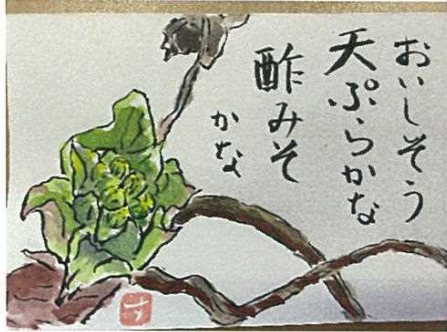 おいしそう
天ぷらかな
酢みそ
かな
す